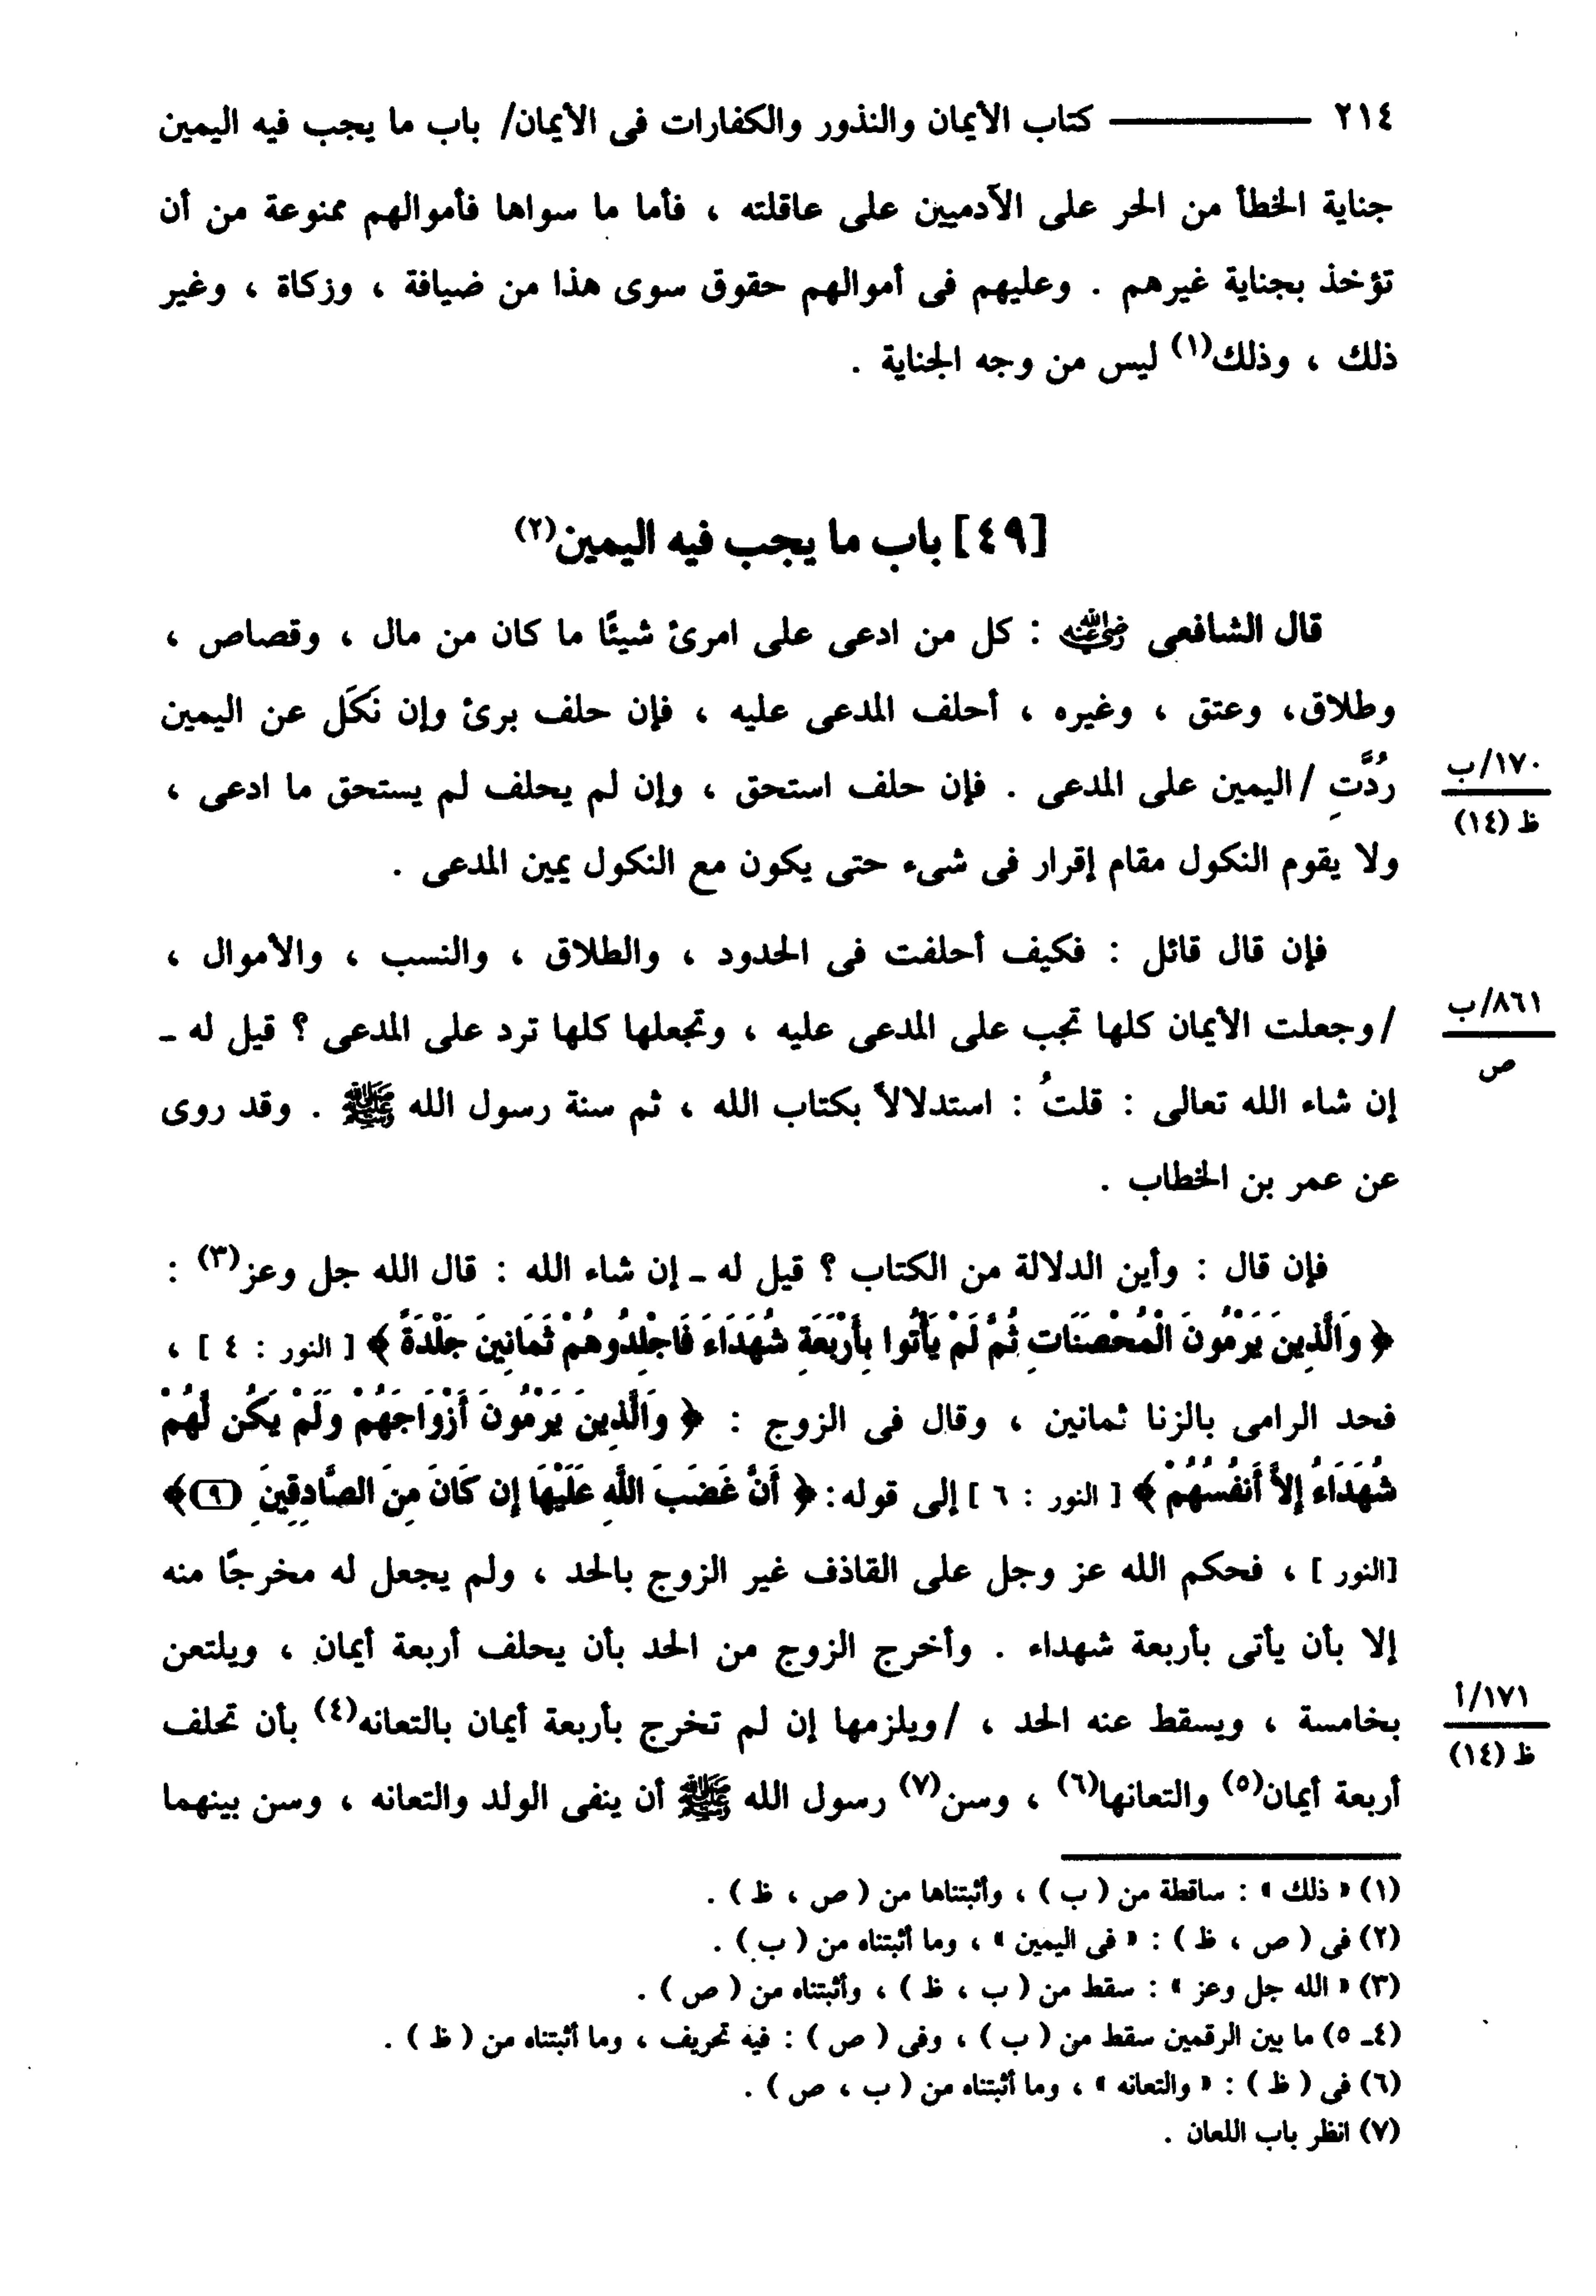 ٢١٤ ـــــــــ كتاب الأيمان والنذور والكفارات فى الأيمان/ باب ما يجب فيه اليمين
جناية الخطأ من الحر على الآدميين على عاقلته ، فأما ما سواها فأموالهم ممنوعة من أن
تؤخذ بجناية غيرهم . وعليهم فى أموالهم حقوق سوى هذا من ضيافة ، وزكاة ، وغير
ذلك ، وذلك(١) ليس من وجه الجناية .
[٤٩] باب ما يجب فيه اليمين(٢)
قال الشافعى رضي الله عنه : كل من ادعى على امرئ شيئًا ما كان من مال ، وقصاص ،
وطلاق، وعتق ، وغيره ، أحلف المدعى عليه ، فإن حلف برئ وإن نَكَل عن اليمين
رُدَّتِ /اليمين على المدعى . فإن حلف استحق ، وإن لم يحلف لم يستحق ما ادعى ،
١٧٠/ب
ظ (١٤)
ولا يقوم النكول مقام إقرار فى شىء حتى يكون مع النكول يمين المدعى .
فإن قال قائل : فكيف أحلفت فى الحدود ، والطلاق ، والنسب ، والأموال ،
/وجعلت الأيمان كلها تجب على المدعى عليه ، وتجعلها كلها ترد على المدعى ؟ قيل له ـ
٨٦١/ب
ص
إن شاء الله تعالى : قلتُ : استدلالاً بكتاب الله ، ثم سنة رسول الله ﷺ . وقد روى
عن عمر بن الخطاب .
فإن قال : وأين الدلالة من الكتاب ؟ قيل له ـ إن شاء الله : قال الله جل وعز(٣) :
﴿ وَالَّذِينَ يَرْمُونَ الْمُحْصَنَاتِ ثُمَّ لَمْ يَأْتُوا بِأَرْبَعَةِ شُهَدَاءَ فَاجْلِدُوهُمْ ثَمَانِينَ جَلْدَةً ﴾ [ النور : ٤ ] ،
فحد الرامى بالزنا ثمانين ، وقال فى الزوج : ﴿ وَالَّذِينَ يَرْمُونَ أَزْوَاجَهُمْ وَلَمْ يَكُن لَّهُمْ
شُهَدَاءُ إِلاَّ أَنفُسُهُمْ ﴾ [ النور : ٦ ] إلى قوله: ﴿ أَنَّ غَضَبَ اللَّهِ عَلَيْهَا إِن كَانَ مِنَ الصَّادِقِينَ (٩)﴾
[النور ] ، فحكم الله عز وجل على القاذف غير الزوج بالحد ، ولم يجعل له مخرجًا منه
إلا بأن يأتى بأربعة شهداء . وأخرج الزوج من الحد بأن يحلف أربعة أيمان ، ويلتعن
بخامسة ، ويسقط عنه الحد ، /ويلزمها إن لم تخرج بأربعة أيمان بالتعانه(٤) بأن تحلف
١٧١/أ
ظ (١٤)
أربعة أيمان(٥) والتعانها(٦) ، وسن(٧) رسول الله ﷺ أن ينفى الولد والتعانه ، وسن بينهما
(١) « ذلك » : ساقطة من ( ب ) ، وأثبتناها من ( ص ، ظ ) .
(٢) فى ( ص ، ظ ) : « فى اليمين » ، وما أثبتناه من ( ب ) .
(٣) « الله جل وعز » : سقط من ( ب ، ظ ) ، وأثبتناه من ( ص ) .
(٤ـ ٥) ما بين الرقمين سقط من ( ب ) ، وفى ( ص ) : فيه تحريف ، وما أثبتناه من ( ظ ) .
(٦) فى ( ظ ) : « والتعانه » ، وما أثبتناه من ( ب ، ص ) .
(٧) انظر باب اللعان .